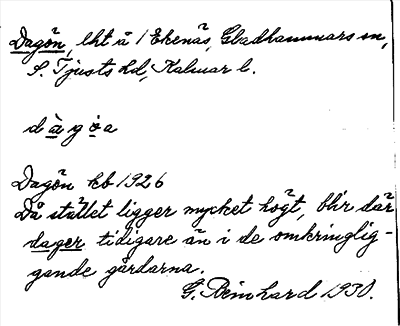 Dagön, lht å 1 Ekenäs, Gladhammars sn,
S. Tjusts hd, Kalmar l.
dàgȯa
Dagön kb 1926
Då stället ligger mycket högt, blir där
dager tidigare än i de omkringlig-
gande gårdarna.
G. Reinhard 1930.